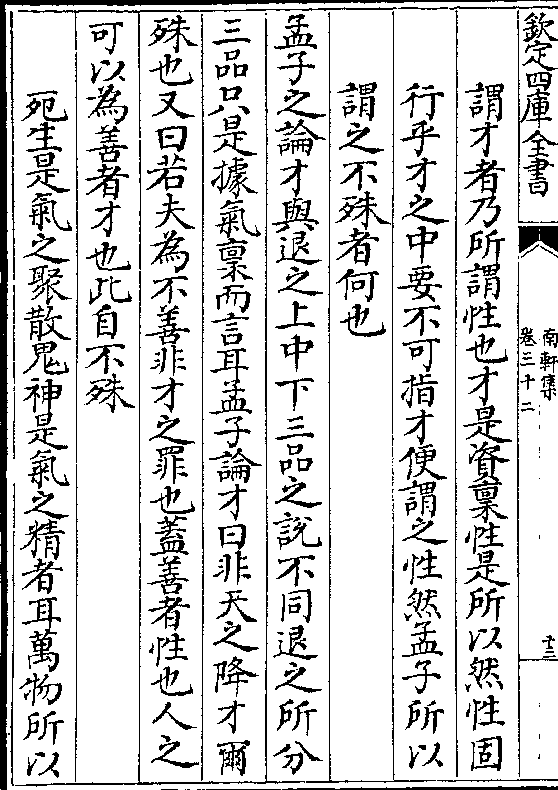 欽定四庫全書
南軒集
卷三十二
十三
謂才者乃所謂性也才是資稟性是所以然性固
行乎才之中要不可指才便謂之性然孟子所以
謂之不殊者何也
孟子之論才與退之上中下三品之說不同退之所分
三品只是據氣稟而言耳孟子論才曰非天之降才爾
殊也又曰若夫為不善非才之罪也蓋善者性也人之
可以為善者才也此自不殊
死生是氣之聚散鬼神是氣之精者耳萬物所以